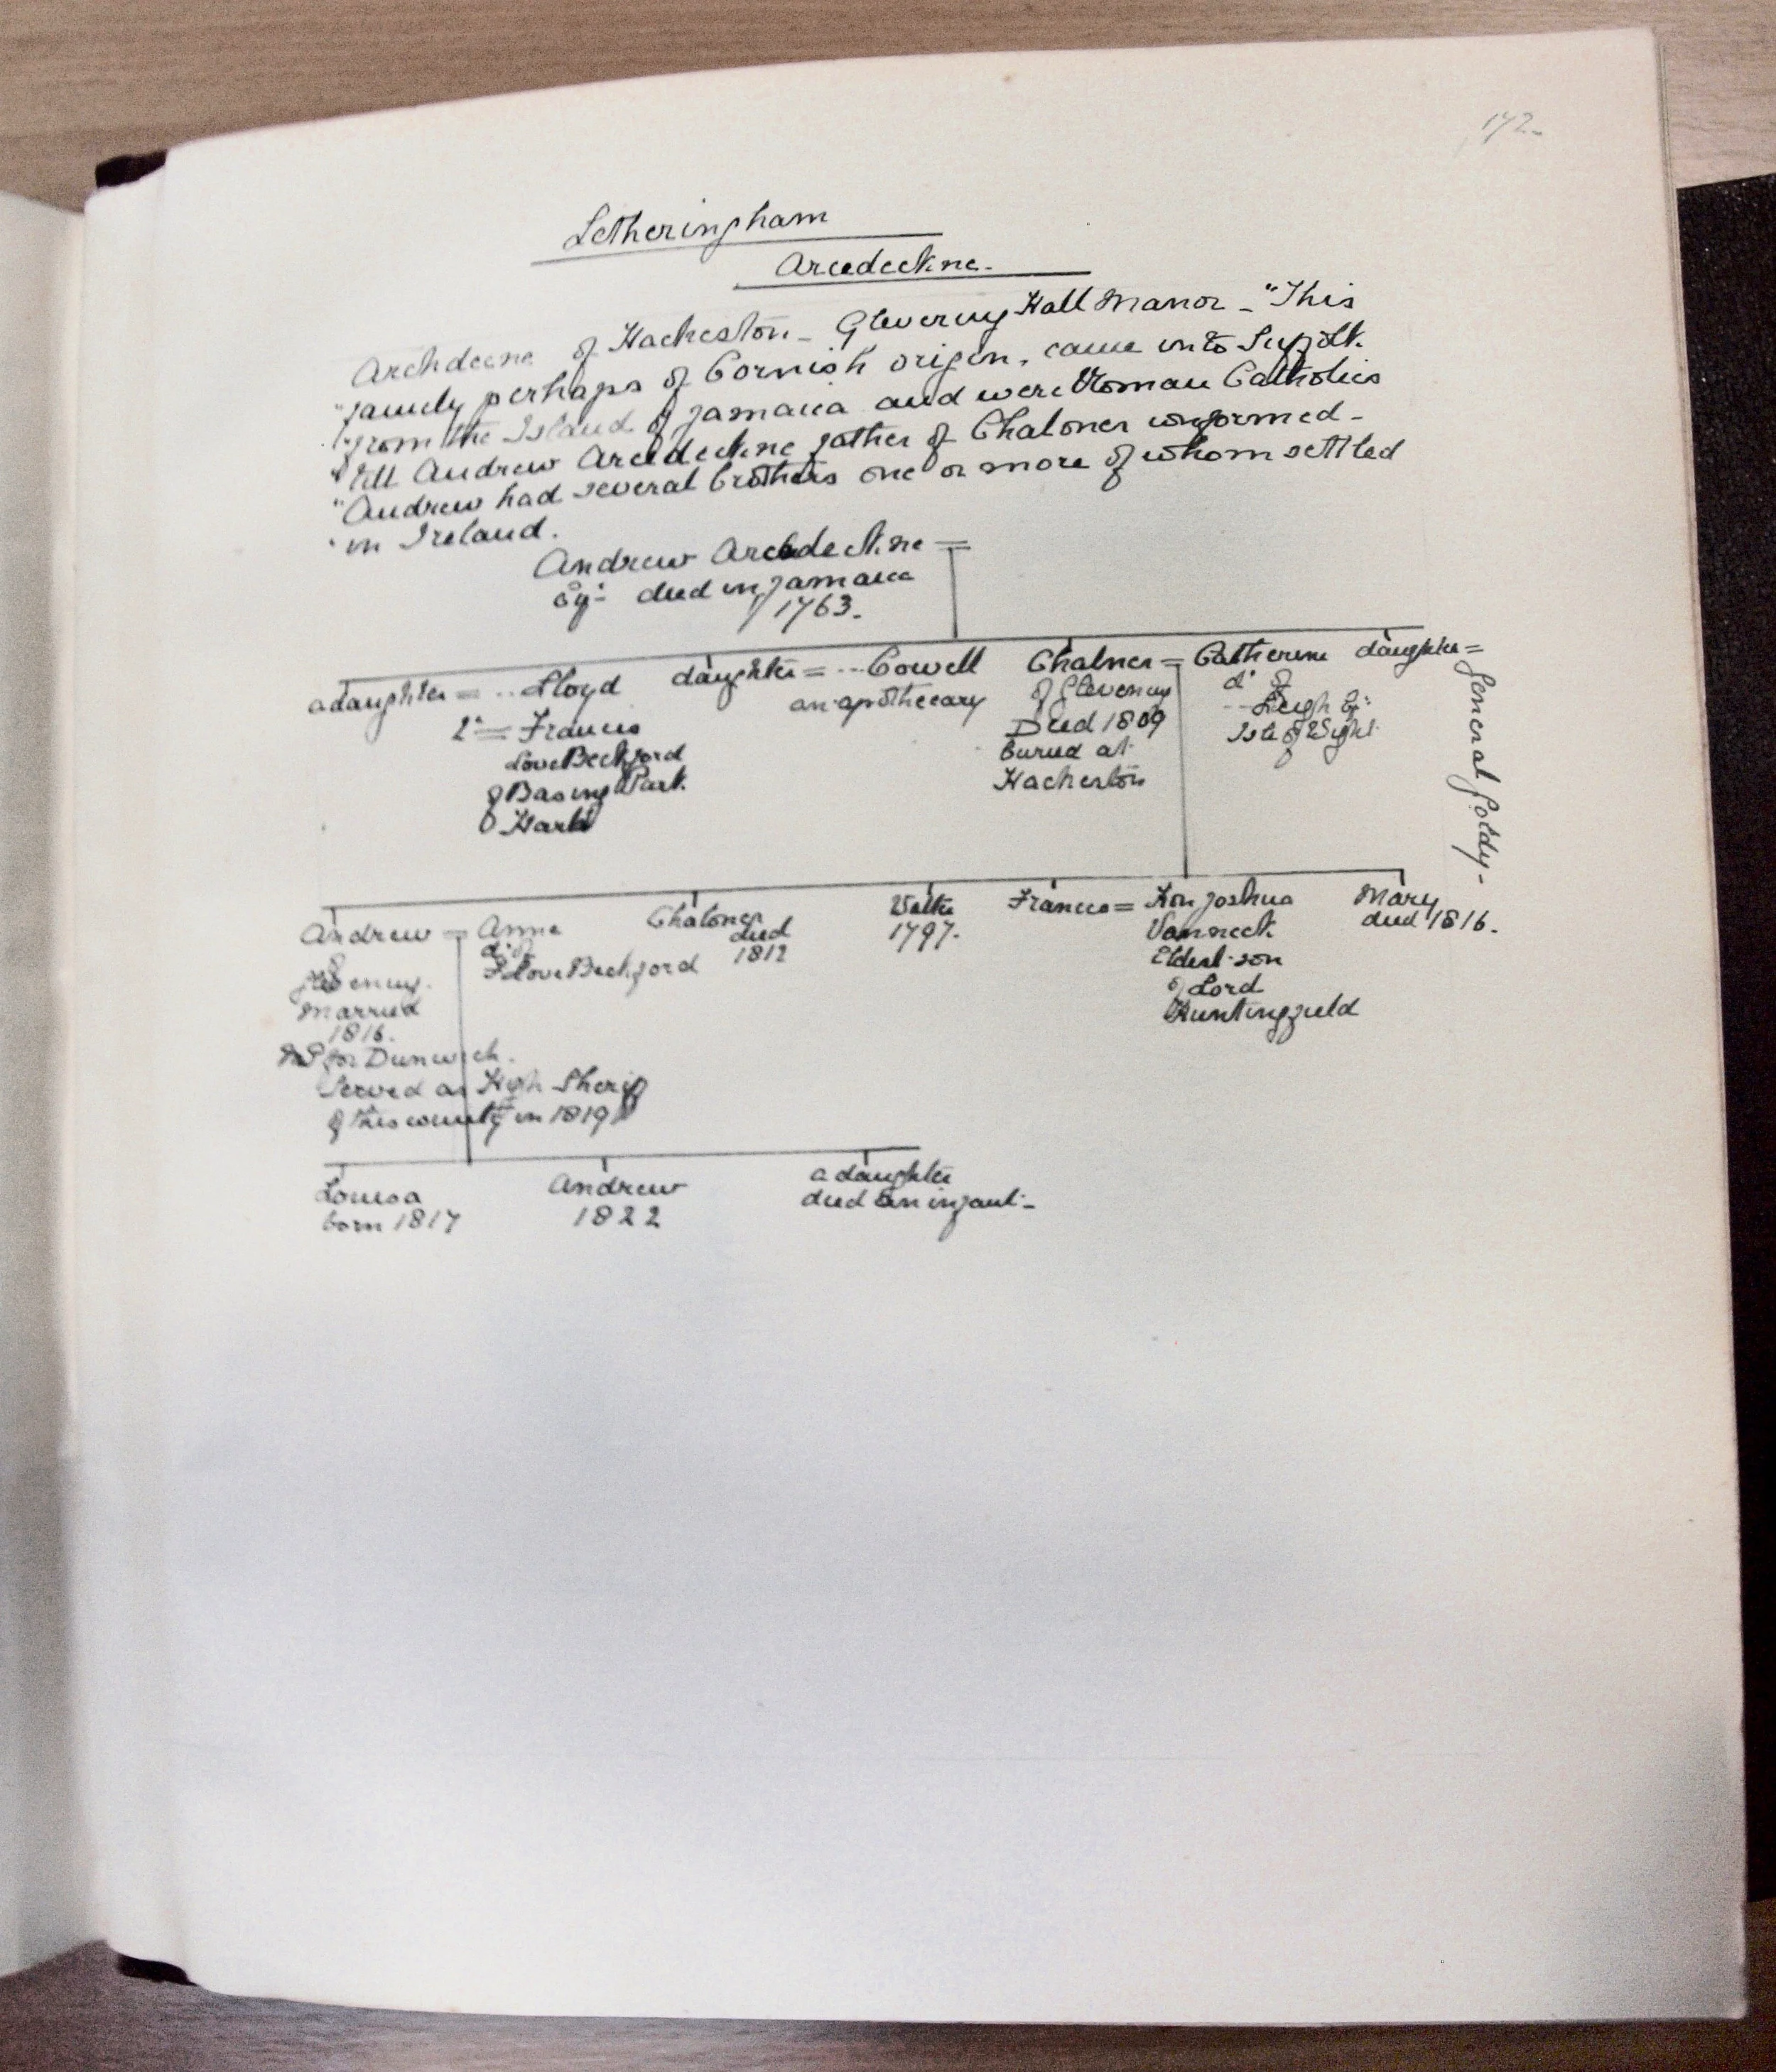 172.
Letheringham
Arcedeckne.
Archdecne of Hacheston - Glevering Hall Manor - "This
"family perhaps of Cornish origin, came into Suffolk
"from the Island of Jamaica and were Roman Catholics
"till Andrew Arcedeckne father of Chaloner conformed -
"Andrew had several brothers one or more of whom settled
"in Ireland.
Andrew Arcedeckne =
Esq: died in Jamaica
1763.
a daughter = .. Lloyd daughter = ... Cowell Chalner = Catherine daughter = General Goldy -
2d = Francis an apothecary of Glevering dr of
Love Beckford Died 1809 ... Leigh Esq:
of Basing Park buried at Isle of Wight
Hants Hacheston
Andrew = Anne Chaloner died 1812 Walter 1797. Frances = Hon Joshua Mary died 1816.
of dr of Vanneck
Glevering. F Love Beckford Eldest son
married of Lord
1816. Huntingfield
MP for Dunwich.
Served as High Sheriff
of this county in 1819
Louisa Andrew a daughter
born 1817 1822 died an infant -